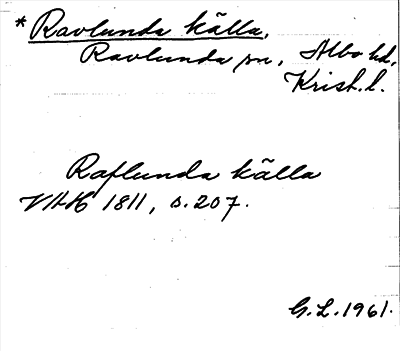 * Ravlunda källa,
Ravlunda sn, Albo hd,
Krist. l.
Raflunda källa
VAH 1811, s. 207.
G.L. 1961.